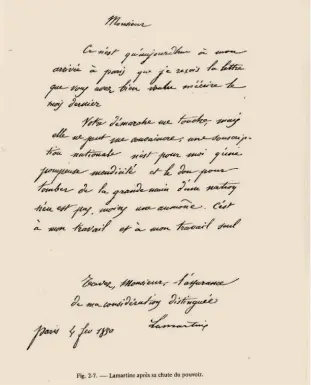 Monsieur
Ce n'est qu'aujourd'hui à mon
arrivée à paris que je reçois la lettre
que vous avez bien voulu m'écrire le
mois dernier
Votre démarche me touche, mais
elle ne peut me convaincre, une souscrip
tion nationale n'est pour moi qu'une
pompeuse mendicité et le don pour
tomber de la grande main d'une nation
n'en est pas moins une aumône. C'est
à mon travail et à mon travail seul
Monsieur, l'assurance
de ma considération distinguée
paris 4 1850
Lamartine
Fig. 2-7. — Lamartine après sa chute du pouvoir.